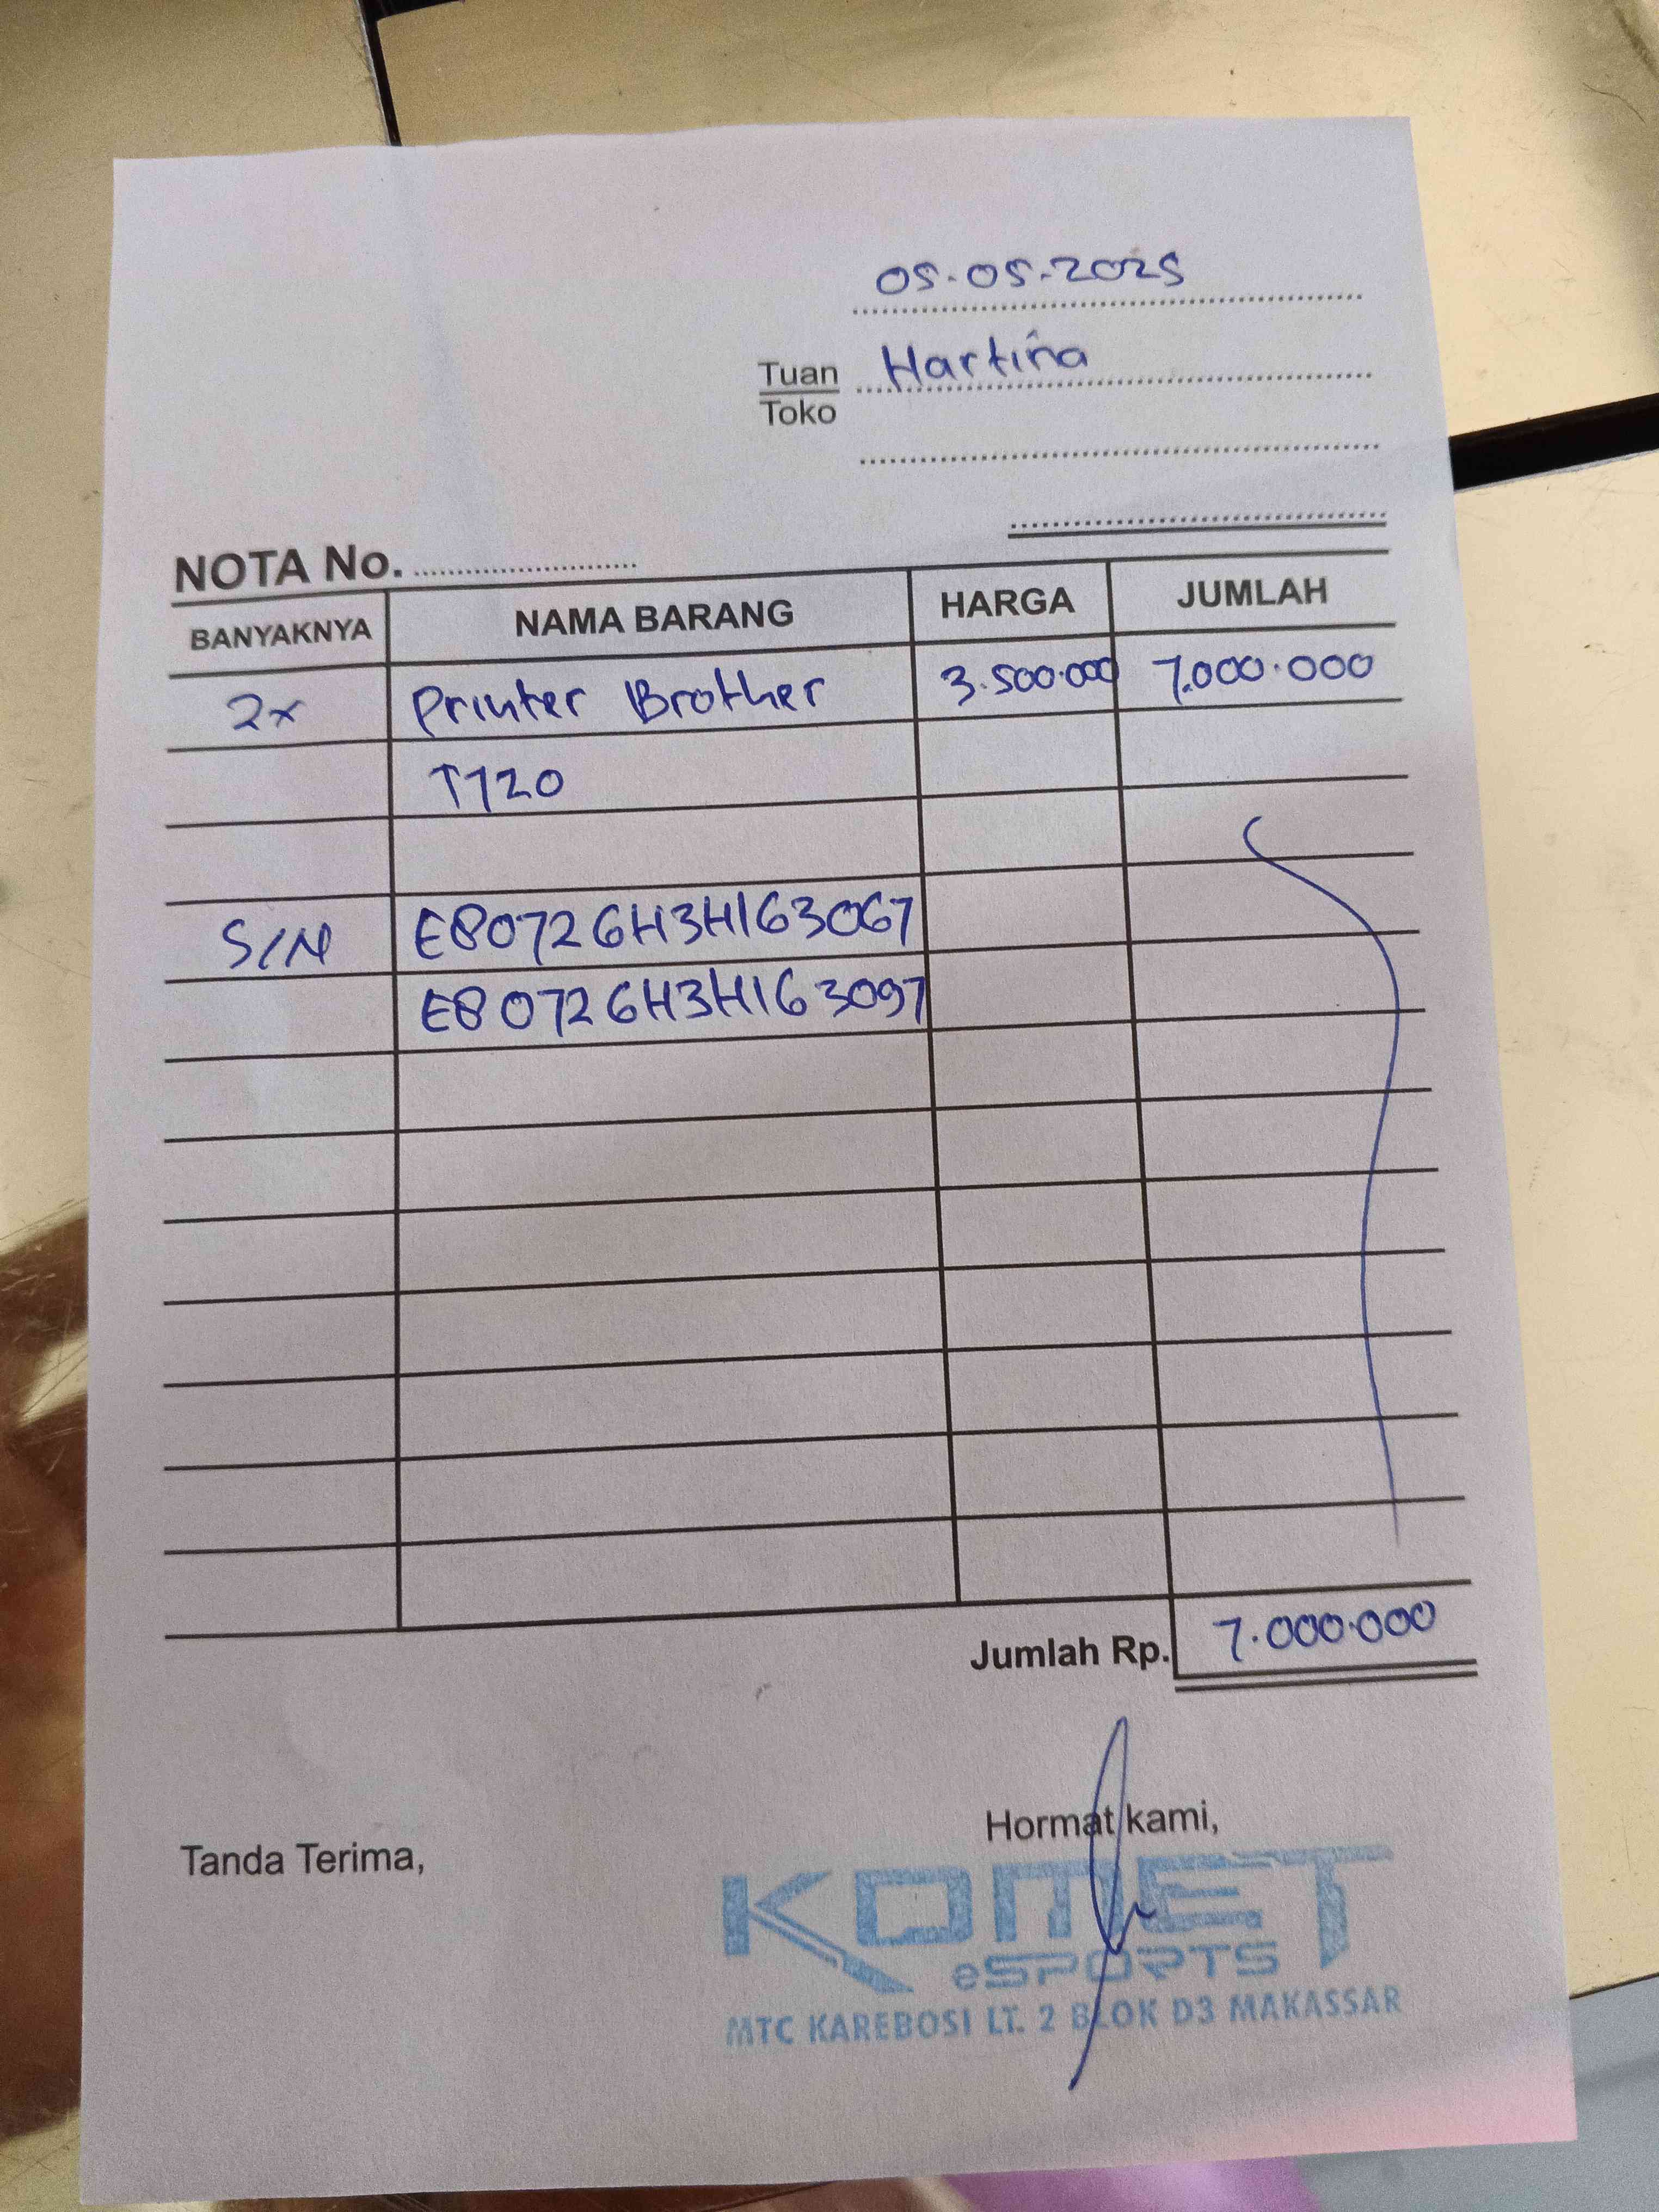 05-05-2025
Tuan Hartina
Toko
NOTA No.
BANYAKNYA NAMA BARANG HARGA JUMLAH
2x Printer Brother 3.500.000 7.000.000
T720
S/N E80726H3H163067
E80726H3H163097
Jumlah Rp. 7.000.000
Tanda Terima, Hormat kami,
KOMET
eSPORTS
MTC KAREBOSI LT. 2 BLOK D3 MAKASSAR